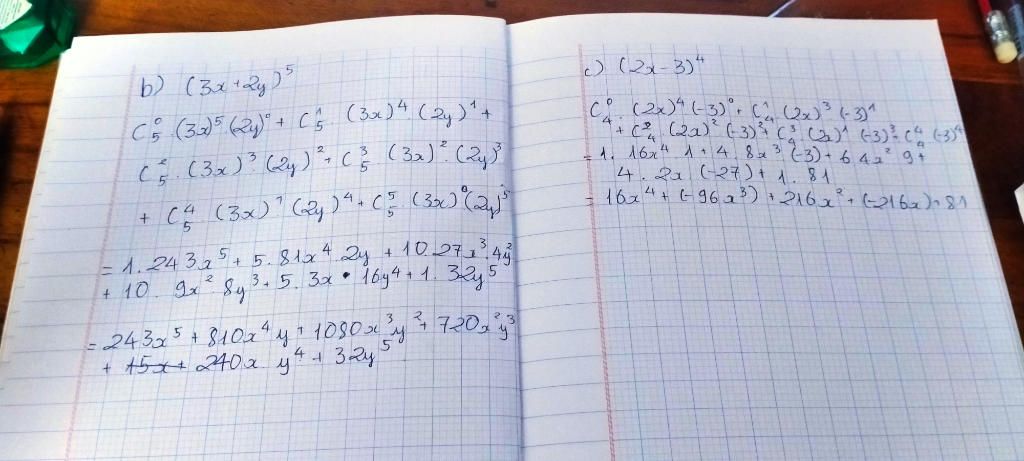 b) (3x+2y)⁵
C₅⁰·(3x)⁵(2y)⁰ + C₅¹ (3x)⁴·(2y)¹ +
C₅²·(3x)³·(2y)² + C₅³ (3x)²·(2y)³
+ C₅⁴ (3x)¹(2y)⁴ + C₅⁵·(3x)⁰(2y)⁵
= 1.243x⁵ + 5.81x⁴ 2y + 10.27x³.4y²
+ 10. 9x².8y³ + 5.3x • 16y⁴ + 1.32y⁵
= 243x⁵ + 810x⁴y + 1080x³y² + 720x²y³
+ 240x y⁴ + 32y⁵
c) (2x-3)⁴
C₄⁰·(2x)⁴(-3)⁰ + C₄¹(2x)³(-3)¹
+ C₄² (2x)²(-3)² + C₄³(2x)¹(-3)³ + C₄⁴(-3)⁴
= 1. 16x⁴.1 + 4.8x³(-3) + 6 4x² 9 +
4. 2x (-27) + 1.81
= 16x⁴ + (-96x³) + 216x² + (-216x) + 81